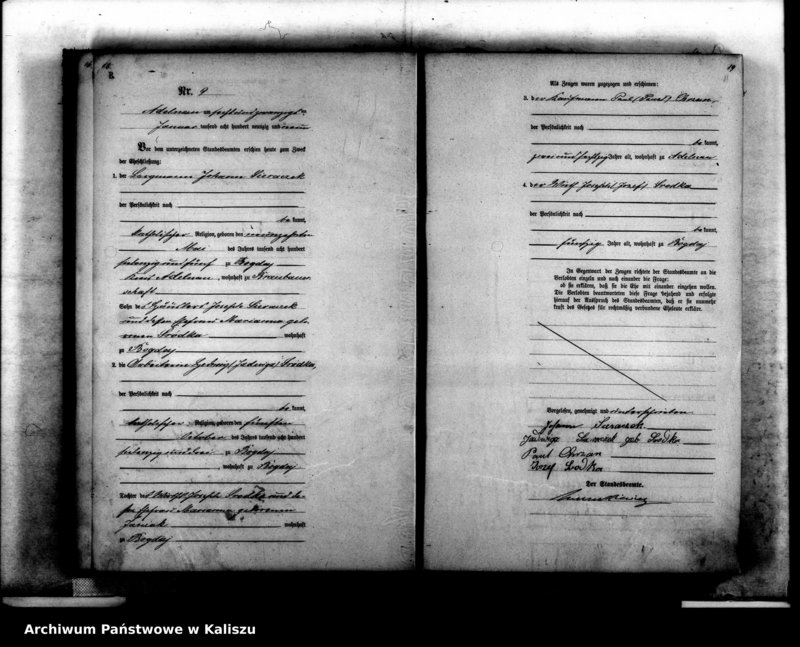 B.
Nr. 9
Adelnau, am
Januar tausend acht hundert neunzig und neun
Vor dem unterzeichneten Standesbeamten erschien heute zum Zweck
der Eheschließung:
1. der Bergmann Johann
der Persönlichkeit nach
be kannt,
katholischer Religion, geboren den neunzehnten
Mai des Jahres tausend acht hundert
siebenzig und fünf zu Bogdaj
Kreis Adelnau, wohnhaft zu
schaft
Sohn des Joseph
und dessen Ehefrau Marianna gebo-
renen Srodka wohnhaft
zu Bogdaj
2. die Arbeiterin Hedwig (Jadwiga) Srodka,
der Persönlichkeit nach
be kannt,
katholischer Religion, geboren den fünften
October des Jahres tausend acht hundert
siebenzig und drei zu Bogdaj
, wohnhaft zu Bogdaj
Tochter des Wirths Joseph Srodka und des-
sen Ehefrau Marianna geborenen
Janiak wohnhaft
zu Bogdaj
19
Als Zeugen waren zugezogen und erschienen:
3. der Kaufmann Paul (Pawel) Chorzan,
der Persönlichkeit nach
be kannt,
zwei und sechszig Jahre alt, wohnhaft zu Adelnau
4. der Wirth Joseph (Jozef) Srodka
der Persönlichkeit nach
be kannt,
fünfzig Jahre alt, wohnhaft zu Bogdaj
In Gegenwart der Zeugen richtete der Standesbeamte an die
Verlobten einzeln und nach einander die Frage:
ob sie erklären, daß sie die Ehe mit einander eingehen wollen.
Die Verlobten beantworteten diese Frage bejahend und erfolgte
hierauf der Ausspruch des Standesbeamten, daß er sie nunmehr
kraft des Gesetzes für rechtmäßig verbundene Eheleute erkläre.
Vorgelesen, genehmigt und unterschrieben
Johann
Jadwiga geb Srodka
Paul Chorzan
Jozef Srodka
Der Standesbeamte.
Archiwum Państwowe w Kaliszu